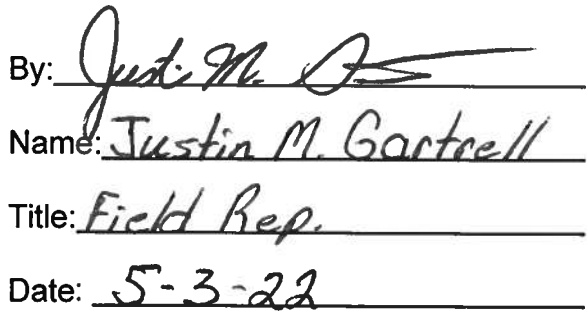 By: Justin M. G
Name: Justin M. Gartrell
Title: Field Rep.
Date: 5-3-22